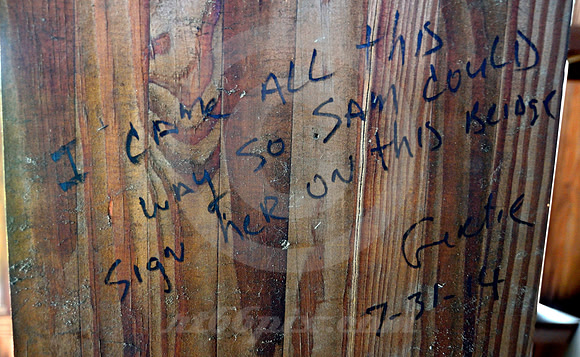 I CAME ALL THIS
WAY SO SAM COULD
SIGN HER ON THIS BRIDGE
Gertie
7-31-14